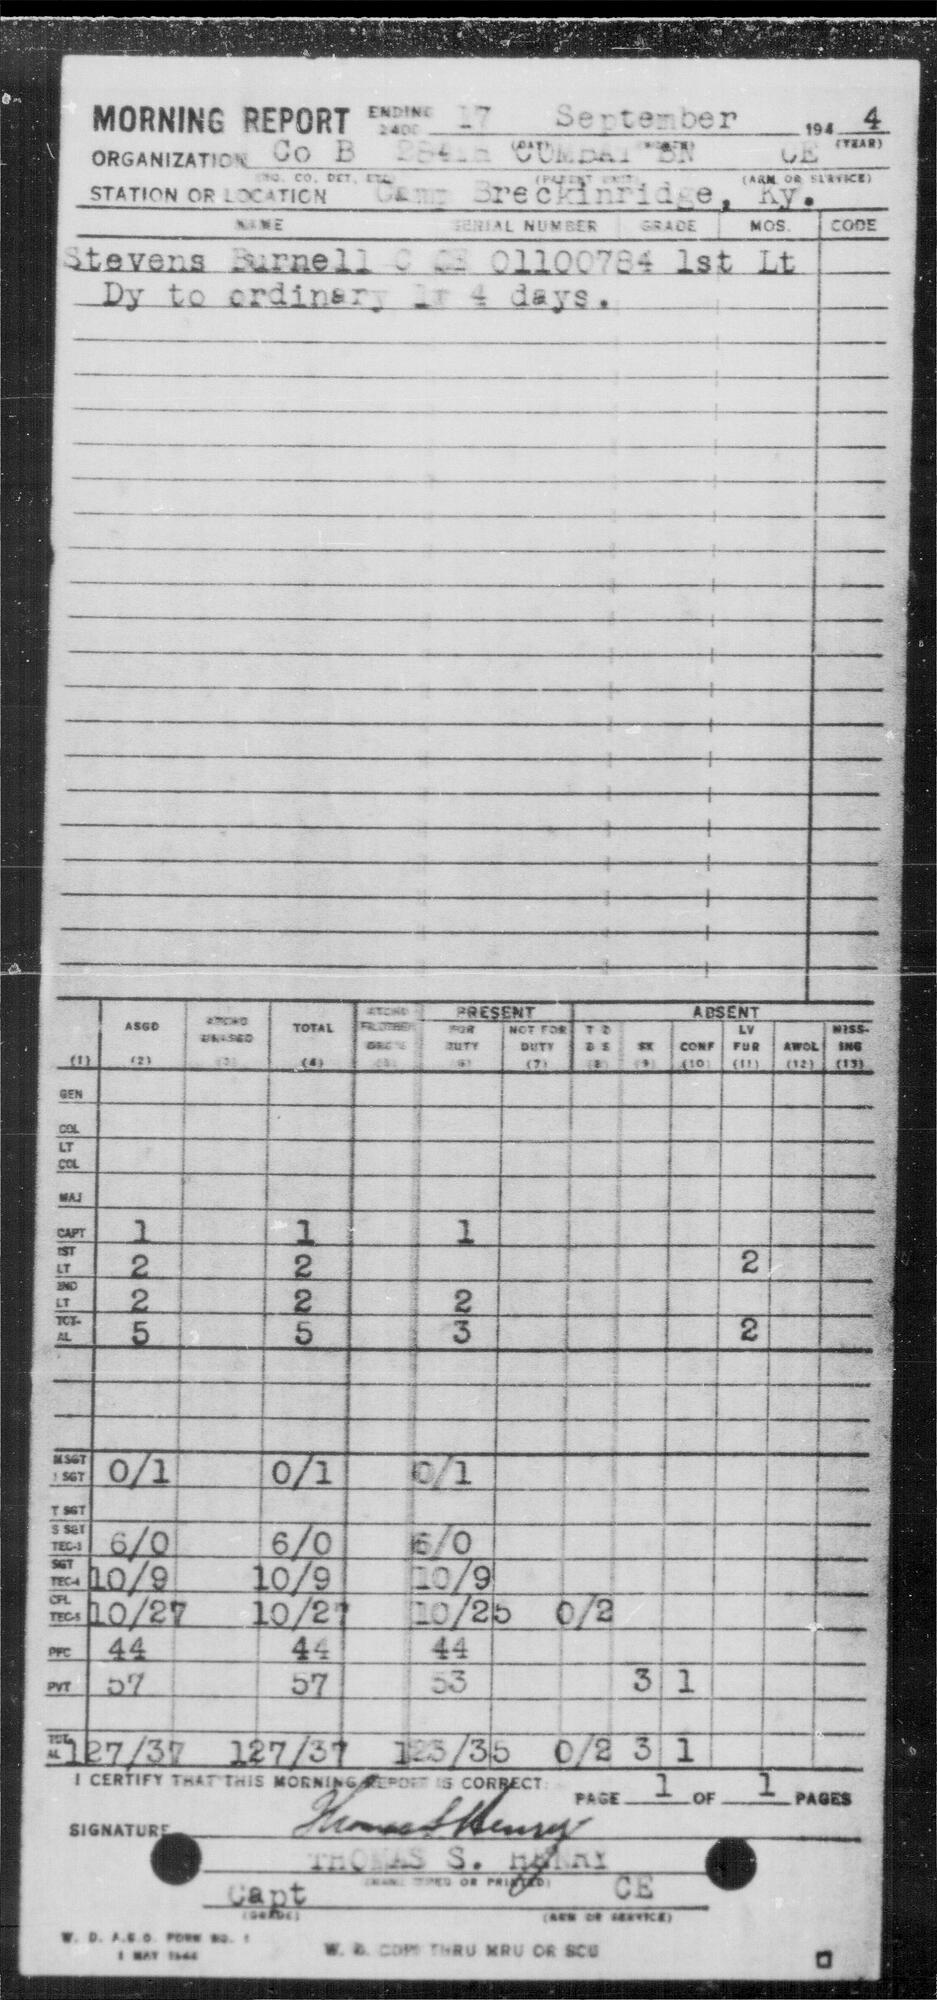 MORNING REPORT ENDING 2400 17 September 194 4
ORGANIZATION Co B 284TH COMBAT BN CE (YEAR)
STATION OR LOCATION Camp Breckinridge, Ky. (ARM OR SERVICE)
NAME SERIAL NUMBER GRADE MOS. CODE
Stevens Burnell C CE 01100784 1st Lt
Dy to ordinary lv 4 days.
PRESENT ABSENT
ASGD ATCHD UNASGD TOTAL FOR DUTY NOT FOR DUTY T D D S SK CONF LV FUR AWOL MISS-ING
(1) (2) (3) (4) (5) (6) (7) (8) (9) (10) (11) (12) (13)
GEN
COL
LT COL
MAJ
CAPT 1 1 1
1ST LT 2 2 2
2ND LT 2 2 2
TOT-AL 5 5 3 2
M SGT 1 SGT 0/1 0/1 0/1
T SGT
S SGT TEC-3 6/0 6/0 6/0
SGT TEC-4 10/9 10/9 10/9
CPL TEC-5 10/27 10/27 10/25 0/2
PFC 44 44 44
PVT 57 57 53 3 1
TOT-AL 127/37 127/37 123/35 0/2 3 1
I CERTIFY THAT THIS MORNING REPORT IS CORRECT.
PAGE 1 OF 1 PAGES
SIGNATURE Thomas S Henry
THOMAS S. HENRY
(NAME TYPED OR PRINTED)
Capt CE
(GRADE) (ARM OR SERVICE)
W. D. A.G.O. FORM NO. 1
1 MAY 1944
W. D. COPY THRU MRU OR SCU